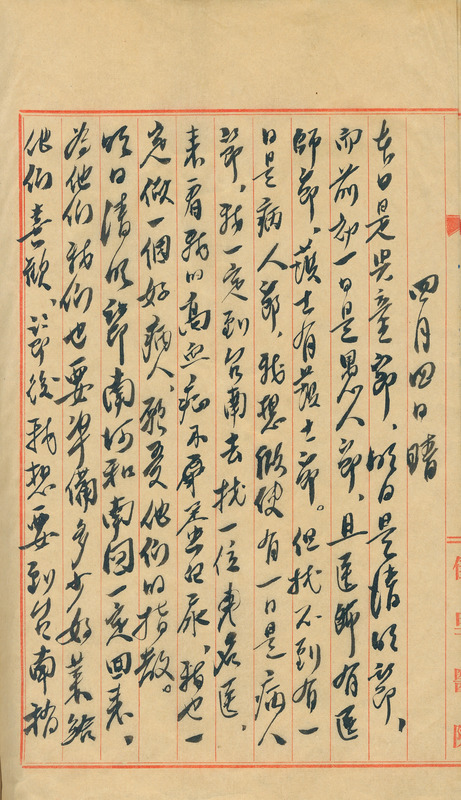 四月四日晴
本日是兒童節,明日是清明節,
而前卻一日是男人節,且醫師有醫
師節,護士有護士節。但找不到有一
日是病人節,我想假使有一日是病人
節,我一定到台南去找一位有名醫,
來看我的高血病不尿,我也一
定做一個好病人,願受他們的指教。
明日清明節南河和南園一定回來,
為他們我們也要準備多少好菜給
他們喜歡、節後我想要到台南稍
醫院